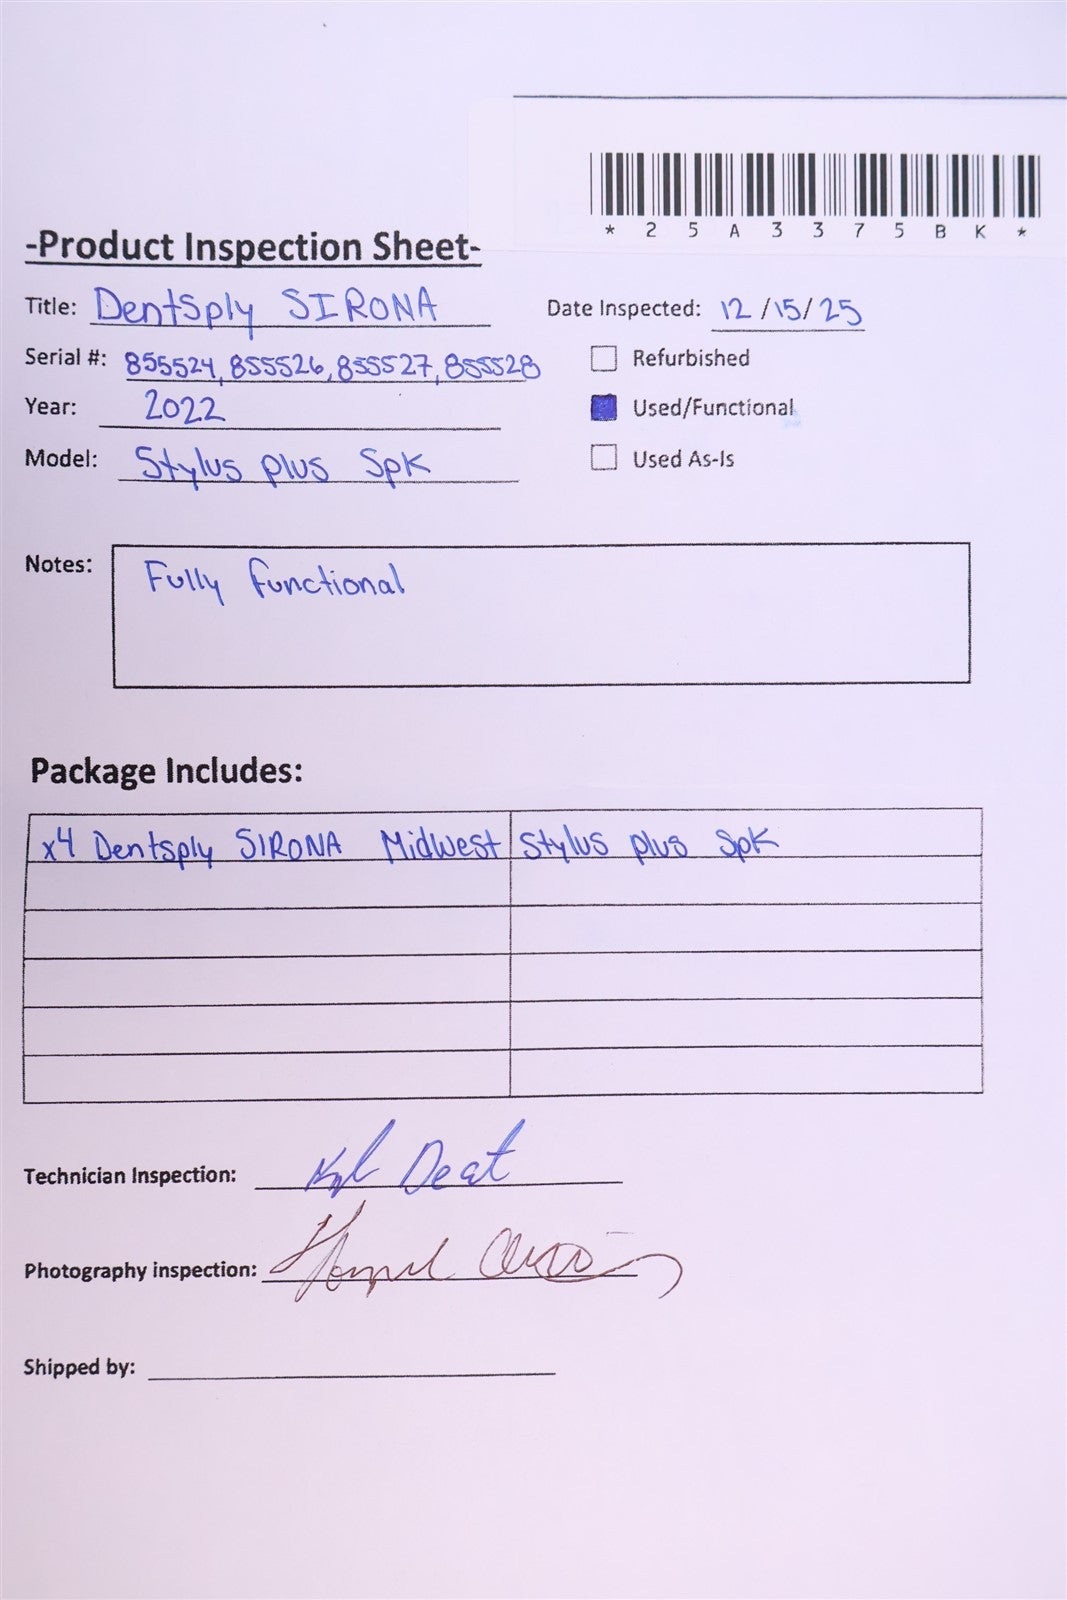 * 2 5 A 3 3 7 5 B K *
-Product Inspection Sheet-
Title: Dentsply SIRONA
Date Inspected: 12/15/25
Serial #: 855524, 855526, 855527, 855528
Refurbished
Year: 2022
Used/Functional
Model: Stylus plus Spk
Used As-Is
Notes: Fully functional
Package Includes:
x4 Dentsply SIRONA Midwest Stylus plus Spk
Technician Inspection:
Photography inspection:
Shipped by: